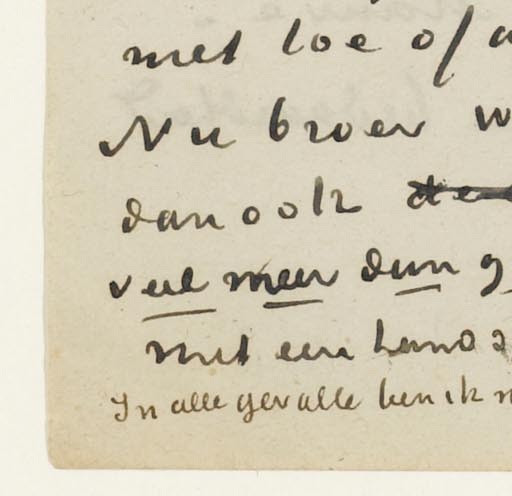 met toe of
Nu broer w
dan ook de
veel meer dan g
met een hand
In alle gevalle ben ik n